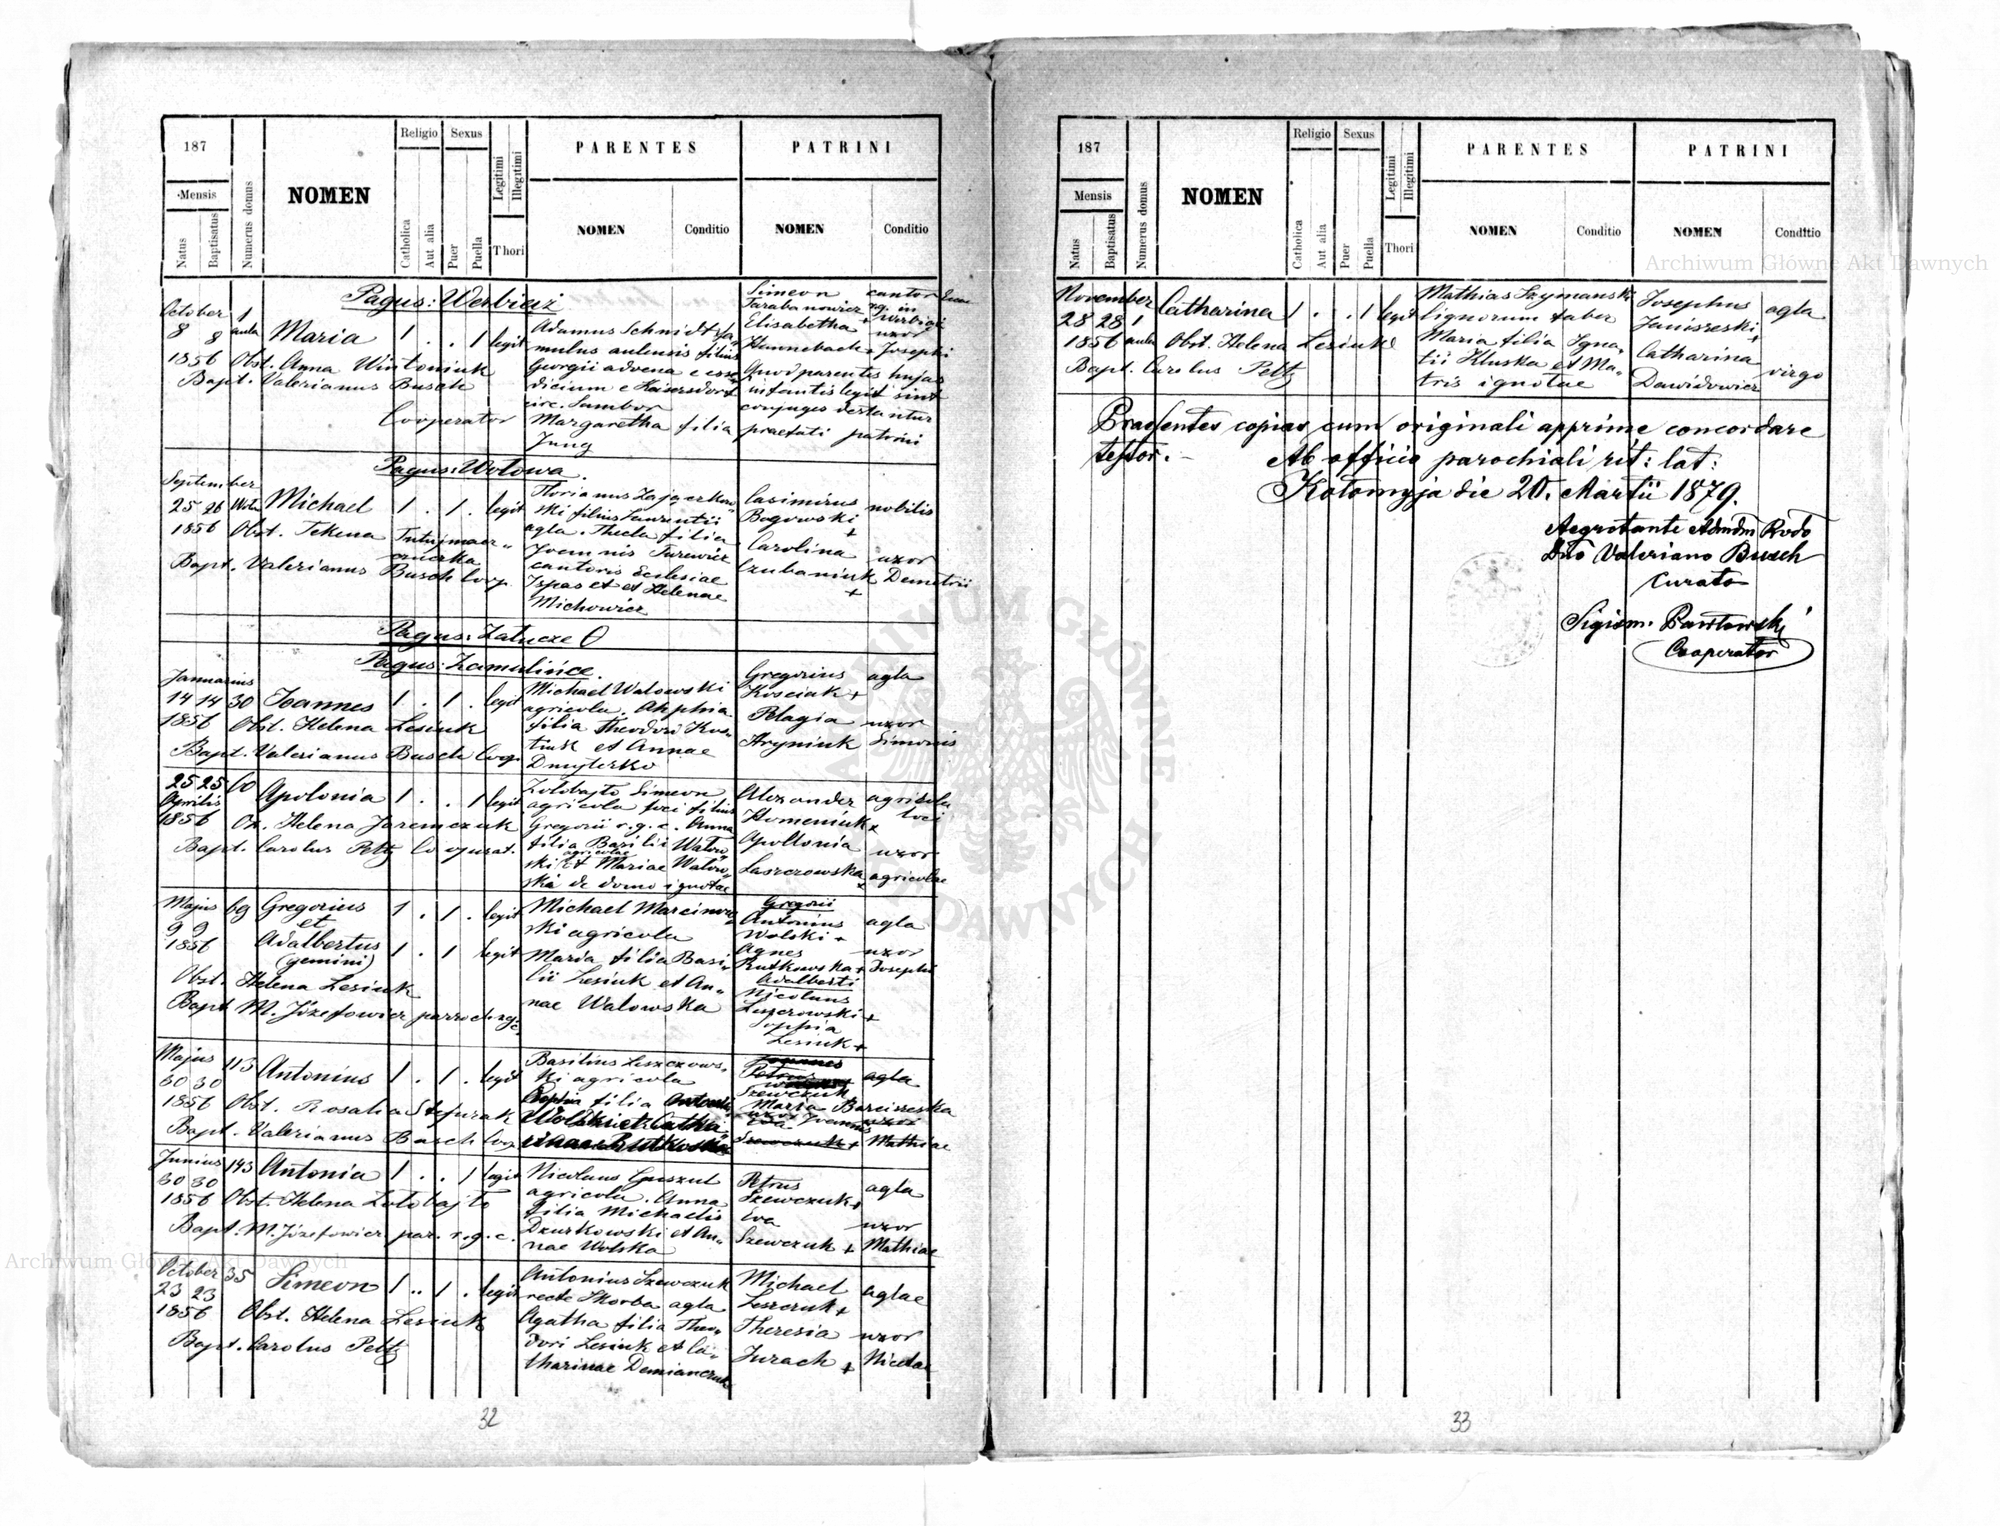 187
Mensis
Natus
Baptisatus
Numerus domus
NOMEN
Religio
Catholica
Aut alia
Sexus
Puer
Puella
Legitimi
Illegitimi
Thori
PARENTES
NOMEN
Conditio
PATRINI
NOMEN
Conditio
Pagus: Werbiąż
October 1
8 8 aula Maria 1 . . 1 legit
1856 Obst. Anna Wintoniuk
Bapt. Valerianus Busch
Cooperator
Adamus Schmidt fa-
mulus aulensis filius
Georgii advena e
e Kaisersdorf
circ. Sambor
Margaretha filia
Jung
Simeon cantor
Tarabanowicz + ag. in
Elisabetha uxor
Hannebach + Josephi
Quod parentis hujus
infantis legit sint
conjuges
praefati patrini
Pagus: Wolowa.
September
25 26 Michael 1 . 1 . legit
1856 Obst. Tekena
Bapt. Valerianus Busch Coop.
Florianus Zajączkow-
ski filius Laurentii
agla. Thecla filia
Joannis Turewicz
cantoris Ecclesiae
Ispas et et Helenae
Michowicz
Casimirus nobilis
Bogowski +
Carolina uxor
Czubaniuk Demetrii
+
Pagus: Zatucze 0
Pagus: Zamulińce.
Januarius
14 14 30 Joannes 1 . 1 . legit
1856 Obst. Helena Lesiuk
Bapt. Valerianus Busch Coop.
Michael Walowski
agricola. Akphia
filia Theodori Kos-
tiuk et Annae
Dmyterko
Gregorius agla
Kosciuk +
Pelagia uxor
Hryniuk Simonis
25 25 60 Apolonia 1 . . 1 legit
Aprilis
1856 Ox. Helena Jaremczuk
Bapt. Carolus Peltz Cooperat.
Zolobajto Simeon
agricola loci filius
Gregorii r.g.c. Anna
filia Basilii Walow-
agricolae
ski et Mariae Walow-
ska de domo ignotae
Alexander agricola
Homeniuk + loci
Apollonia uxor
Laszczowska + agricolae
Majus 69 Gregorius 1 . 1 . legit
9 9 et
1856 Adalbertus 1 . 1 legit
(gemini)
Obst. Helena Lesiuk
Bapt. M. Józefowicz paroch. r.g.c.
Michael Marcinow-
ski agricola
Maria filia Basi-
lii Lesiuk et An-
nae Walowska
Gregorii
Antonius agla
Wolski +
Agnes uxor
Rutkowska + Josephi
Adalberti
Nicolaus
Leszczowski +
Sophia
Lesiuk +
Majus 113 Antonius 1 . 1 . legit
30 30
1856 Obst. Rosalia Stefurak
Bapt. Valerianus Busch Coop
Basilius Leszczows-
ki agricola
filia
Petrus agla
Szewczuk
Maria
Szewczuk + Mathiae
Junius 143 Antonia 1 . . 1 legit
30 30
1856 Obst. Helena Zolobajto
Bapt. M. Józefowicz par. r.g.c.
Nicolaus Guszul
agricola. Anna
filia Michaelis
Dzurkowski et An-
nae Wolska
Petrus agla
Szewczuk +
Eva uxor
Szewczuk + Mathiae
October 35 Simeon 1 .. 1 . legit
23 23
1856 Obst. Helena Lesiuk
Bapt. Carolus Peltz
Antonius Szewczuk
recte Skorba agla
Agatha filia Theo-
dori Lesiuk et Ca-
tharinae Demianczuk
Michael aglae
Leszczuk +
Theresia uxor
Jurach + Nicolai
32
187
Mensis
Natus
Baptisatus
Numerus domus
NOMEN
Religio
Catholica
Aut alia
Sexus
Puer
Puella
Legitimi
Illegitimi
Thori
PARENTES
NOMEN
Conditio
PATRINI
NOMEN
Conditio
November
28 28 1 Catharina 1 . . 1 legit
1856 aula Obst. Helena Lesiuk
Bapt. Carolus Peltz
Mathias Szymanski
lignorum faber
Maria filia Igna-
tii Hluska et Ma-
tris ignotae
Josephus agla
Janiszeski
+
Catharina virgo
Dawidowicz
Praesentes copias cum originali apprime concordare
testor. - Ab officio parochiali rit: lat:
Kołomyja die 20. Martii 1879.
Aegrotante Admdm Rvdo
Dno Valeriano Busch
Curato
Sigism. Pawłowski
Cooperator
33
Archiwum Główne Akt Dawnych
Archiwum Główne Akt Dawnych
ARCHIWUM GŁÓWNE AKT DAWNYCH